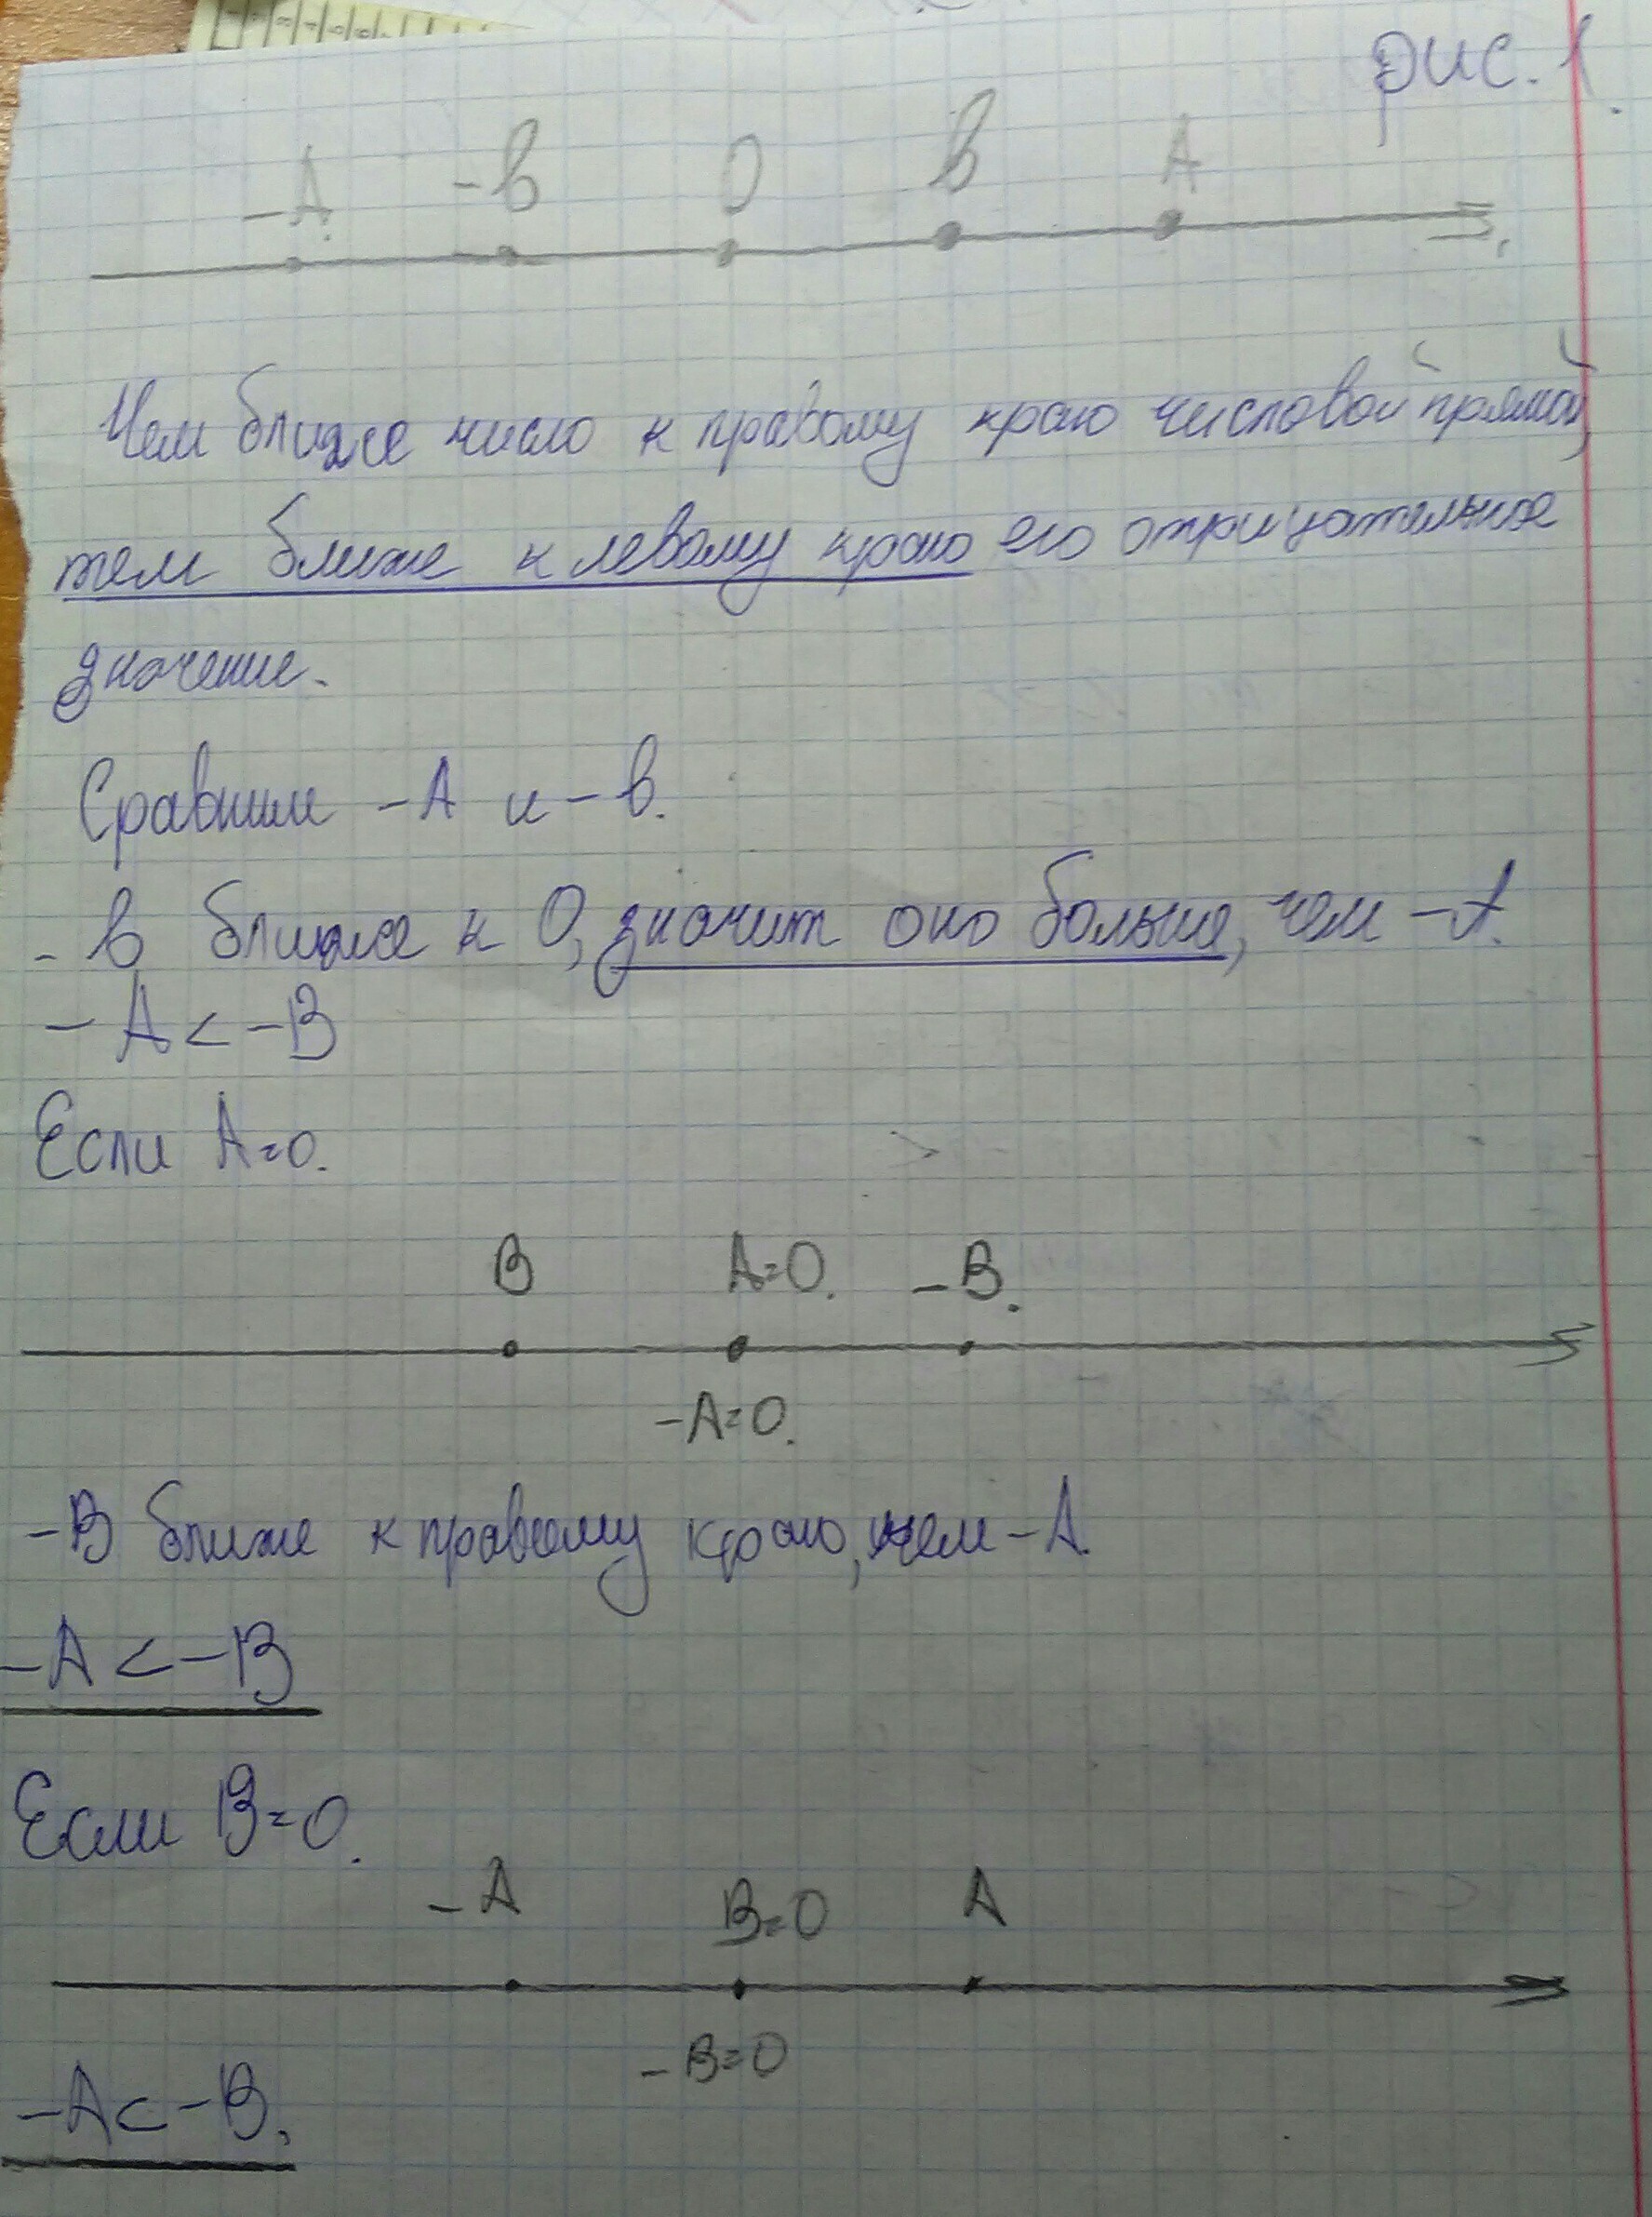 рис. 1.
-А -в 0 в А
Чем ближе число к правому краю числовой прямой,
тем ближе к левому краю его отрицательное
значение.
Сравним -А и -в.
-в ближе к 0, значит оно больше, чем -А.
-А < -В
Если А=0.
В А=0. -В.
-А=0.
-В ближе к правому краю, чем -А
-А < -В
Если В=0.
-А В=0 А
-В=0
-А < -В.